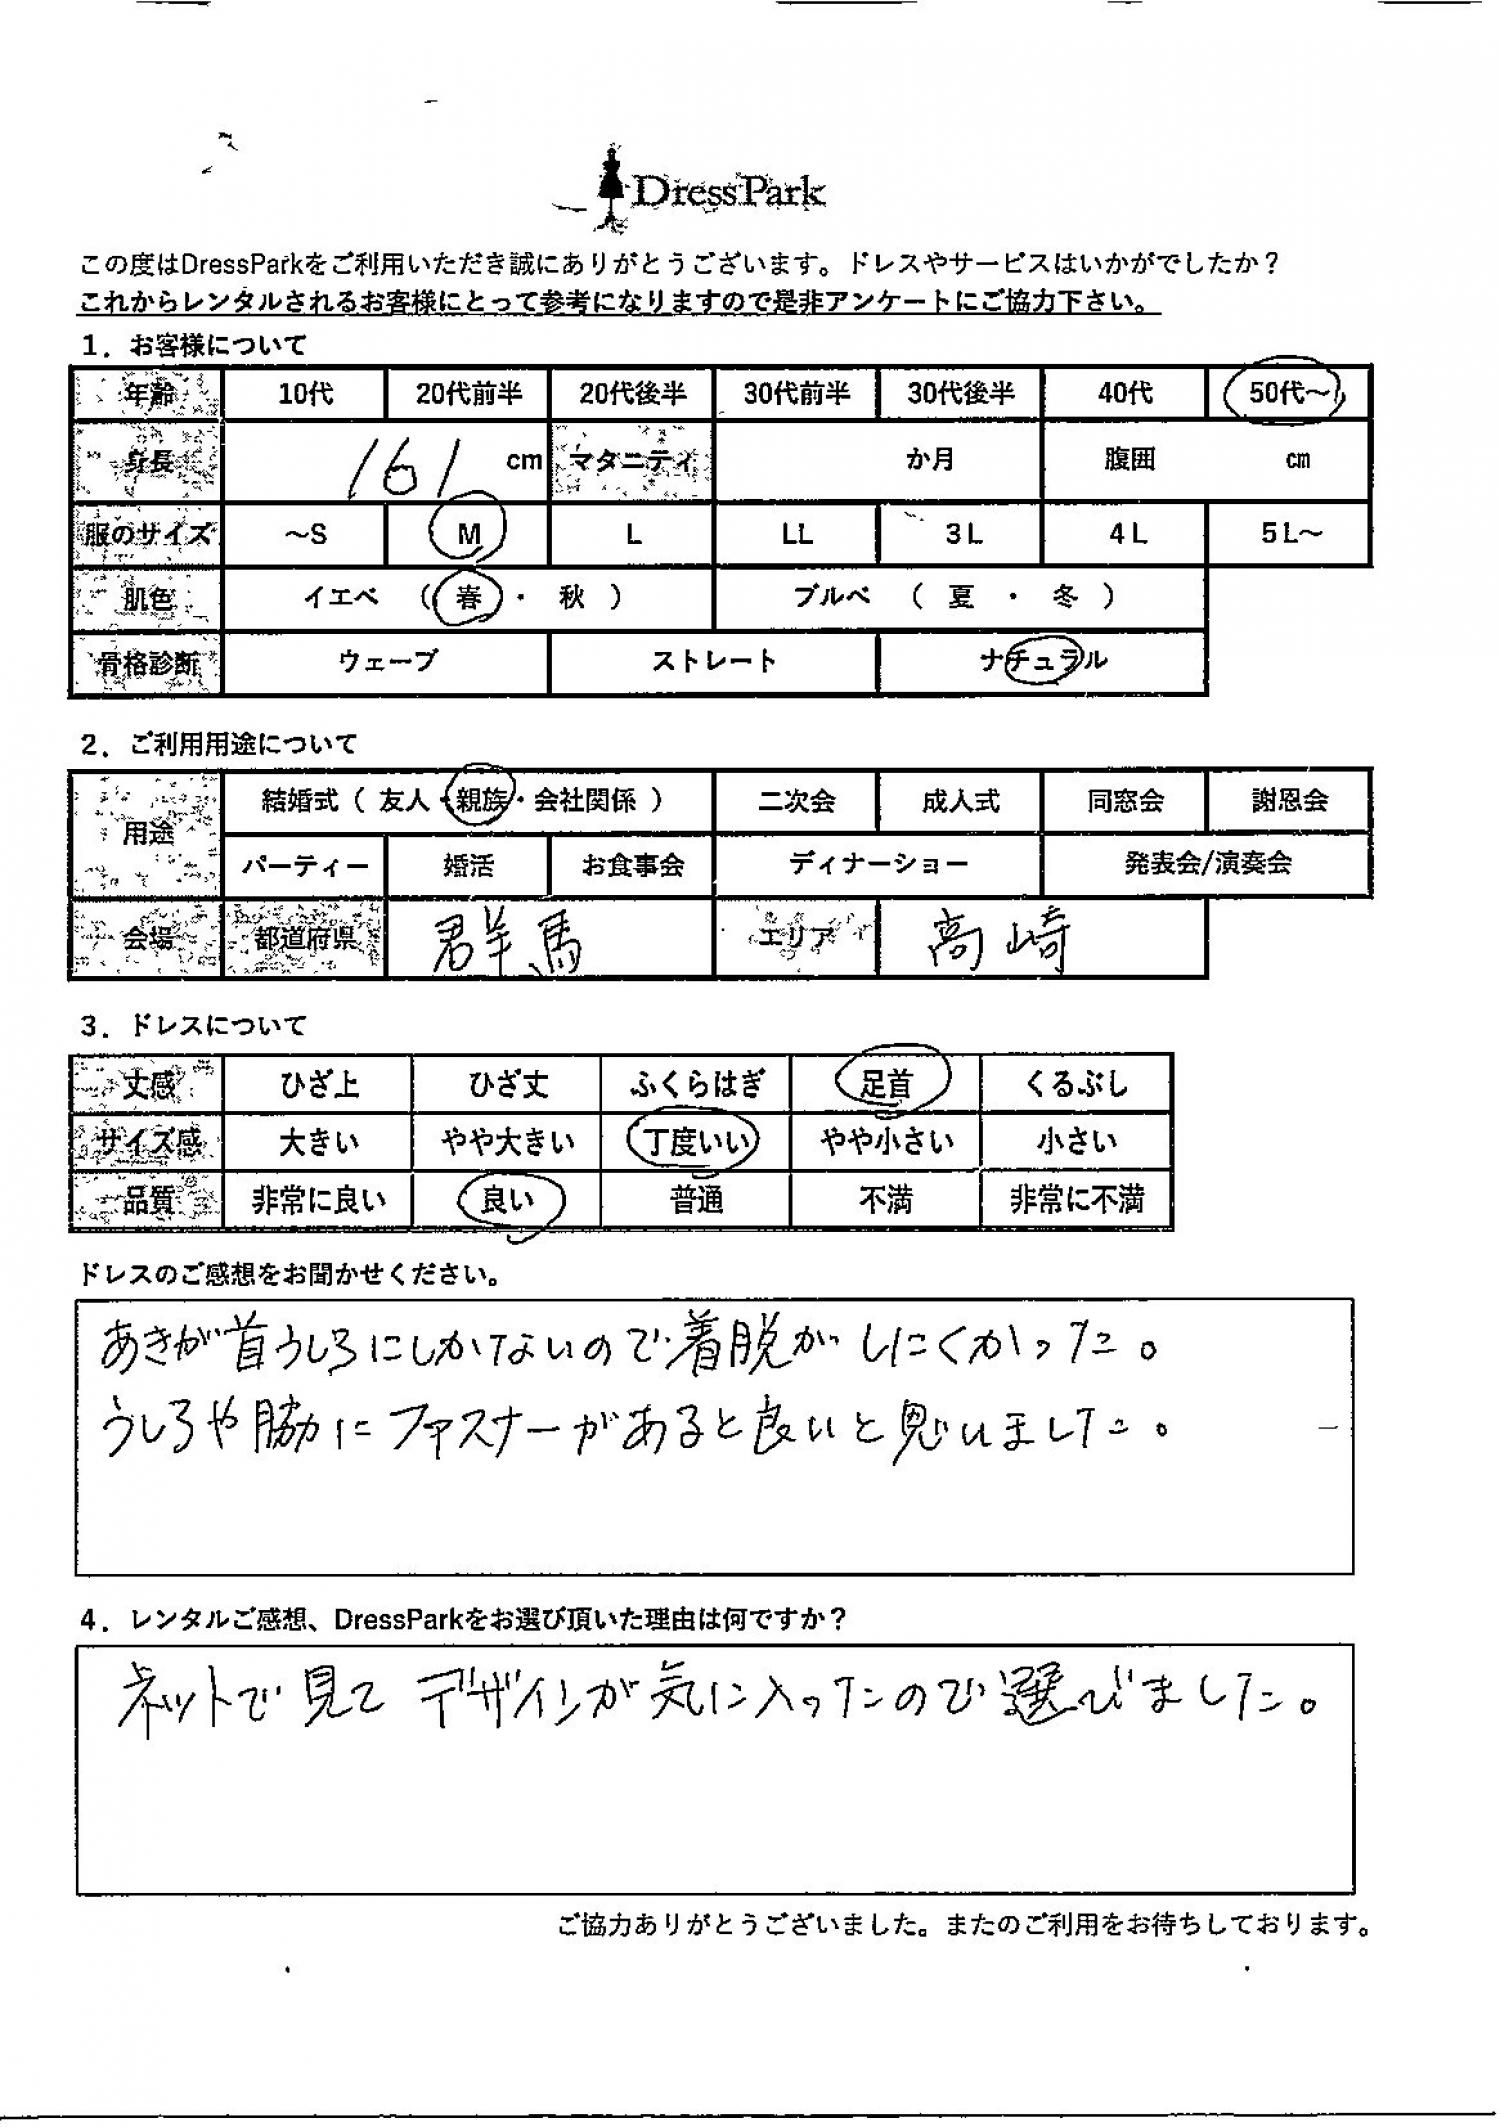 DressPark
この度はDressParkをご利用いただき誠にありがとうございます。ドレスやサービスはいかがでしたか？
これからレンタルされるお客様にとって参考になりますので是非アンケートにご協力下さい。
1．お客様について
年齢 10代 20代前半 20代後半 30代前半 30代後半 40代 50代～
身長 161 cm マタニティ か月 腹囲 cm
服のサイズ ～S M L LL 3L 4L 5L～
肌色 イエベ （ 春 ・ 秋 ） ブルベ （ 夏 ・ 冬 ）
骨格診断 ウェーブ ストレート ナチュラル
2．ご利用用途について
用途 結婚式（ 友人・親族・会社関係 ） 二次会 成人式 同窓会 謝恩会
パーティー 婚活 お食事会 ディナーショー 発表会/演奏会
会場 都道府県 群馬 エリア 高崎
3．ドレスについて
丈感 ひざ上 ひざ丈 ふくらはぎ 足首 くるぶし
サイズ感 大きい やや大きい 丁度いい やや小さい 小さい
品質 非常に良い 良い 普通 不満 非常に不満
ドレスのご感想をお聞かせください。
あきが首うしろにしかないので着脱がしにくかった。
うしろや脇にファスナーがあると良いと思いました。
4．レンタルご感想、DressParkをお選び頂いた理由は何ですか？
ネットで見てデザインが気に入ったので選びました。
ご協力ありがとうございました。またのご利用をお待ちしております。